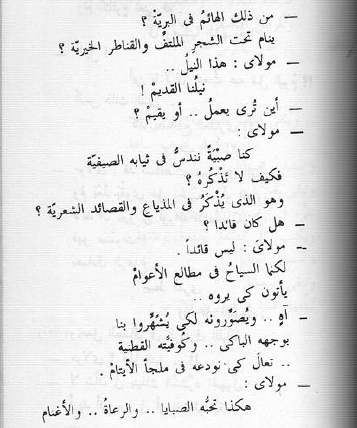 — من ذلك الهائمُ فى البريّةْ ؟
ينام تحت الشجرِ الملتفِّ والقناطر الخيريّة ؟
— مولاى : هذا النيلُ ..
نيلُنا القديمْ !
— أين تُرى يعملُ .. أو يقيمْ ؟
— مولاى :
كنا صبْيَةً نندسُّ فى ثيابه الصيفيّة
فكيف لا تَذْكُرهُ ؟
وهو الذى يُذْكَرُ فى المذياعِ والقصائد الشعريّة ؟
— هل كان قائدا ؟
— مولاىَ : ليس قائداً .
لكنما السياحُ فى مطالع الأعوامْ
يأتون كى يروه ..
— آهٍ .. ويُصَوِّرونه لكى يُشَهِّروا بنا
بوجهه الباكى .. وكُوفيَّته القطنية
.. تعالَ كى نودعه فى ملجأ الأيتامْ .
— مولاى :
هكذا تحبّه الصبايا .. والرعاةُ .. والأغنام